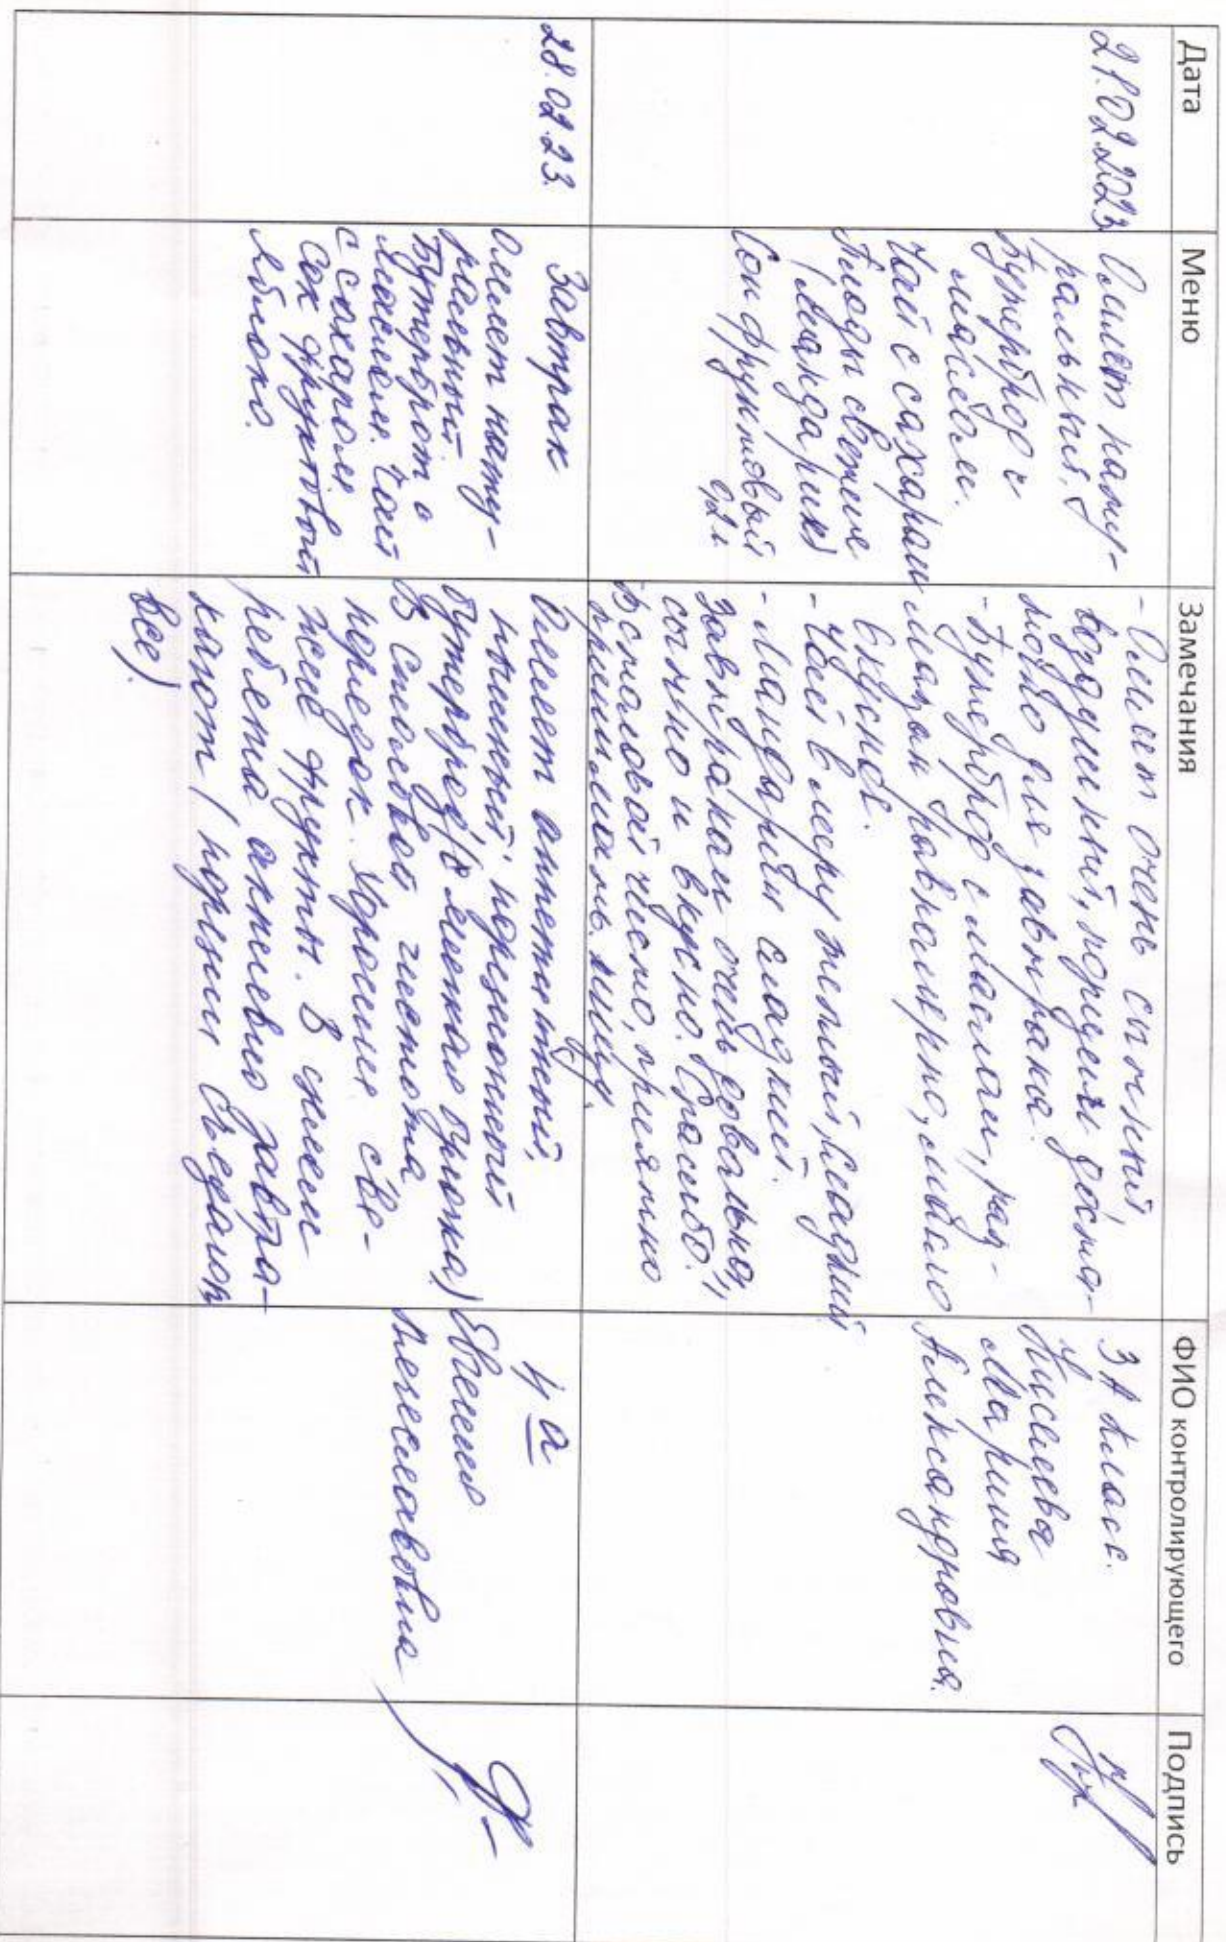 Дата
Меню
Замечания
ФИО контролирующего
Подпись
21.02.2023
Омлет нату-
ральный,
Бутерброд с
маслом.
Чай с сахаром
Плоды свежие
(мандарин)
Сок фруктовый
0,2 л
- Омлет очень сытный,
воздушный, порции доста-
точно для завтрака.
- Бутерброд с маслом, раз-
мазан равномерно, масло
вкусное.
- Чай в меру теплый, сладкий
- Мандарин сладкий.
Завтраком очень довольны,
сытно и вкусно. Спасибо!
В столовой чисто, приятно
принимать пищу.
3 А класс.
Киселева
Марина
Александровна.
28.02.23.
Завтрак
Омлет нату-
ральный.
Бутерброт с
маслом. Чай
с сахаром
Сок фруктовый
яблоко.
Омлет аппетитный,
порционный
бутерброд
В столовой чистота
порядок. Хорошие све-
жие фрукты. В
ребята активно завтра-
кают (порции съедают
все).
4 а
Евгения
Вячеславовна